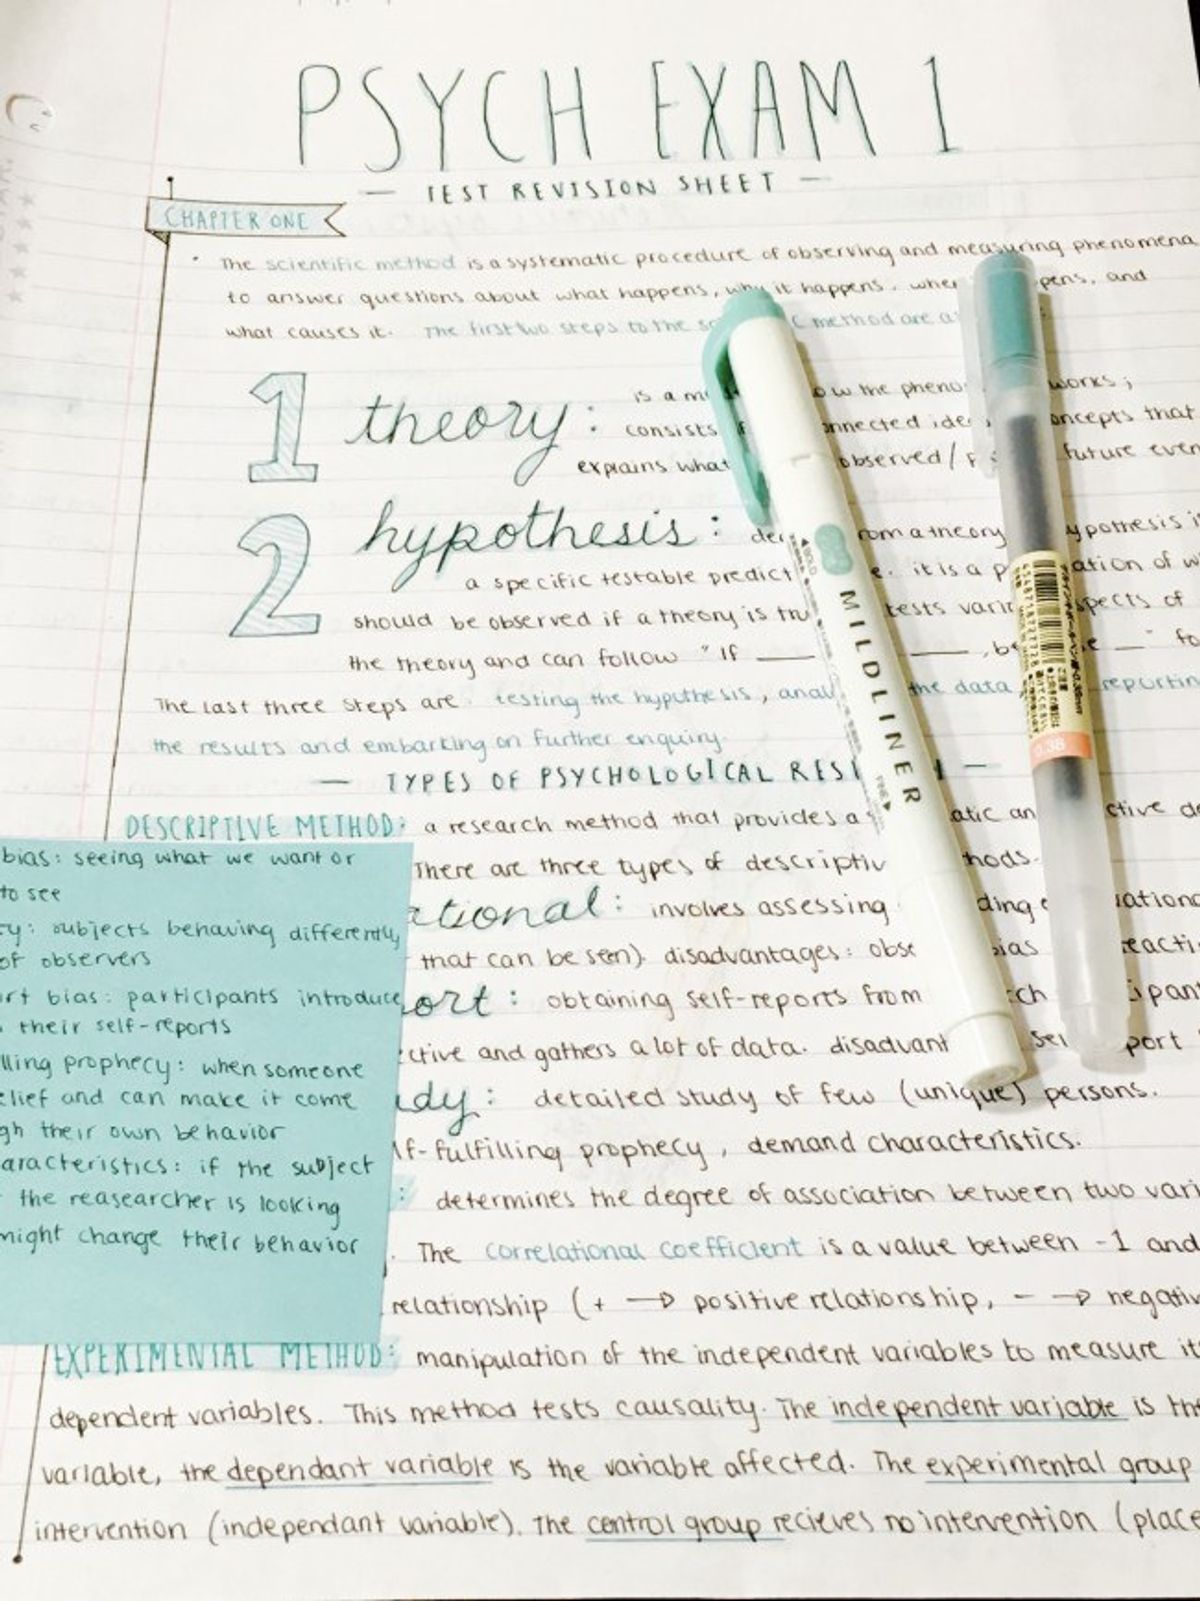 PSYCH EXAM 1
— TEST REVISION SHEET —
CHAPTER ONE
• The scientific method is a systematic procedure of observing and measuring phenomena
to answer questions about what happens, why it happens, when pens, and
what causes it. The first two steps to the method are
1 theory: is a ow the works;
consists nnected oncepts that
explains what observed/ future even
2 hypothesis: rom a theory ypothesis
a specific testable predict e. it is a ation of
should be observed if a theory is tru tests spects of
the theory and can follow "If ___ ___, ___"
The last three steps are testing the hypothesis, the data, reporting
the results and embarking on further enquiry.
— TYPES OF PSYCHOLOGICAL —
DESCRIPTIVE METHOD: a research method that provides a atic an ctive
There are three types of descriptiv hods.
ational: involves assessing ding
that can be seen). disadvantages: obse bias
ort: obtaining self-reports from
ective and gathers a lot of data. disadvant port
udy: detailed study of few (unique) persons.
lf-fulfilling prophecy, demand characteristics.
: determines the degree of association between two vari
. The correlational coefficient is a value between -1 and
relationship (+ → positive relationship, - → negativ
EXPERIMENTAL METHOD: manipulation of the independent variables to measure it
dependent variables. This method tests causality. The independent variable is the
variable, the dependant variable is the variable affected. The experimental group
intervention (independant variable). The control group recieves no intervention (place
bias: seeing what we want or
to see
ty: subjects behaving differently
of observers
ort bias: participants introduce
their self-reports
lling prophecy: when someone
elief and can make it come
gh their own behavior
aracteristics: if the subject
the reasearcher is looking
might change their behavior
MILDLINER
FINE
BOLD
0.38